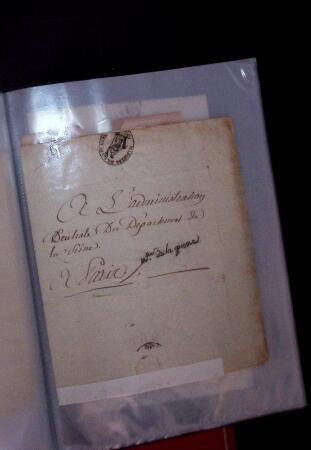 A L'administration
Centrale Du Département de
la Seine
A Paris
Mtre de la guerre